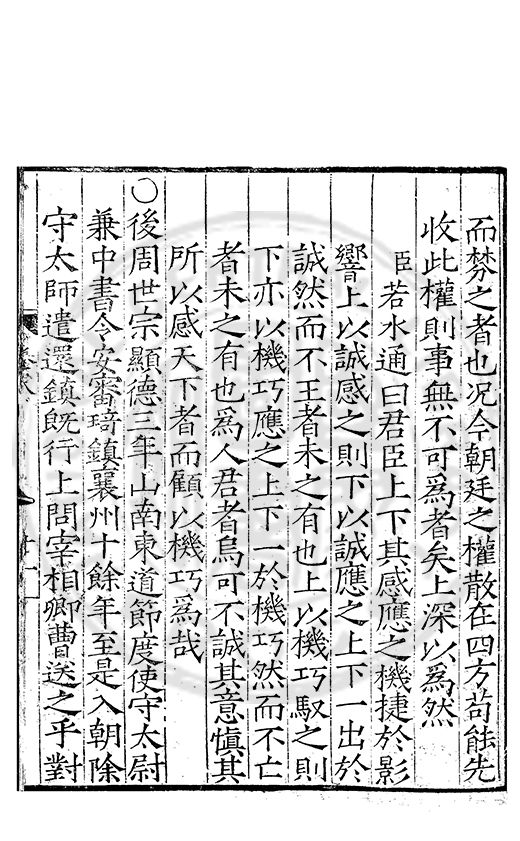 而棼之者也况今朝廷之權散在四方苟能先
收此權則事無不可爲者矣上深以爲然
臣若水通曰君臣上下其感應之機捷於影
響上以誠感之則下以誠應之上下一出於
誠然而不王者未之有也上以機巧馭之則
下亦以機巧應之上下一於機巧然而不亡
者未之有也爲人君者烏可不誠其意愼其
所以感天下者而顧以機巧爲哉
○後周世宗顯德三年山南東道節度使守太尉
兼中書令安審琦鎮襄州十餘年至是入朝除
守太師遣還鎮旣行上問宰相卿曹送之乎對